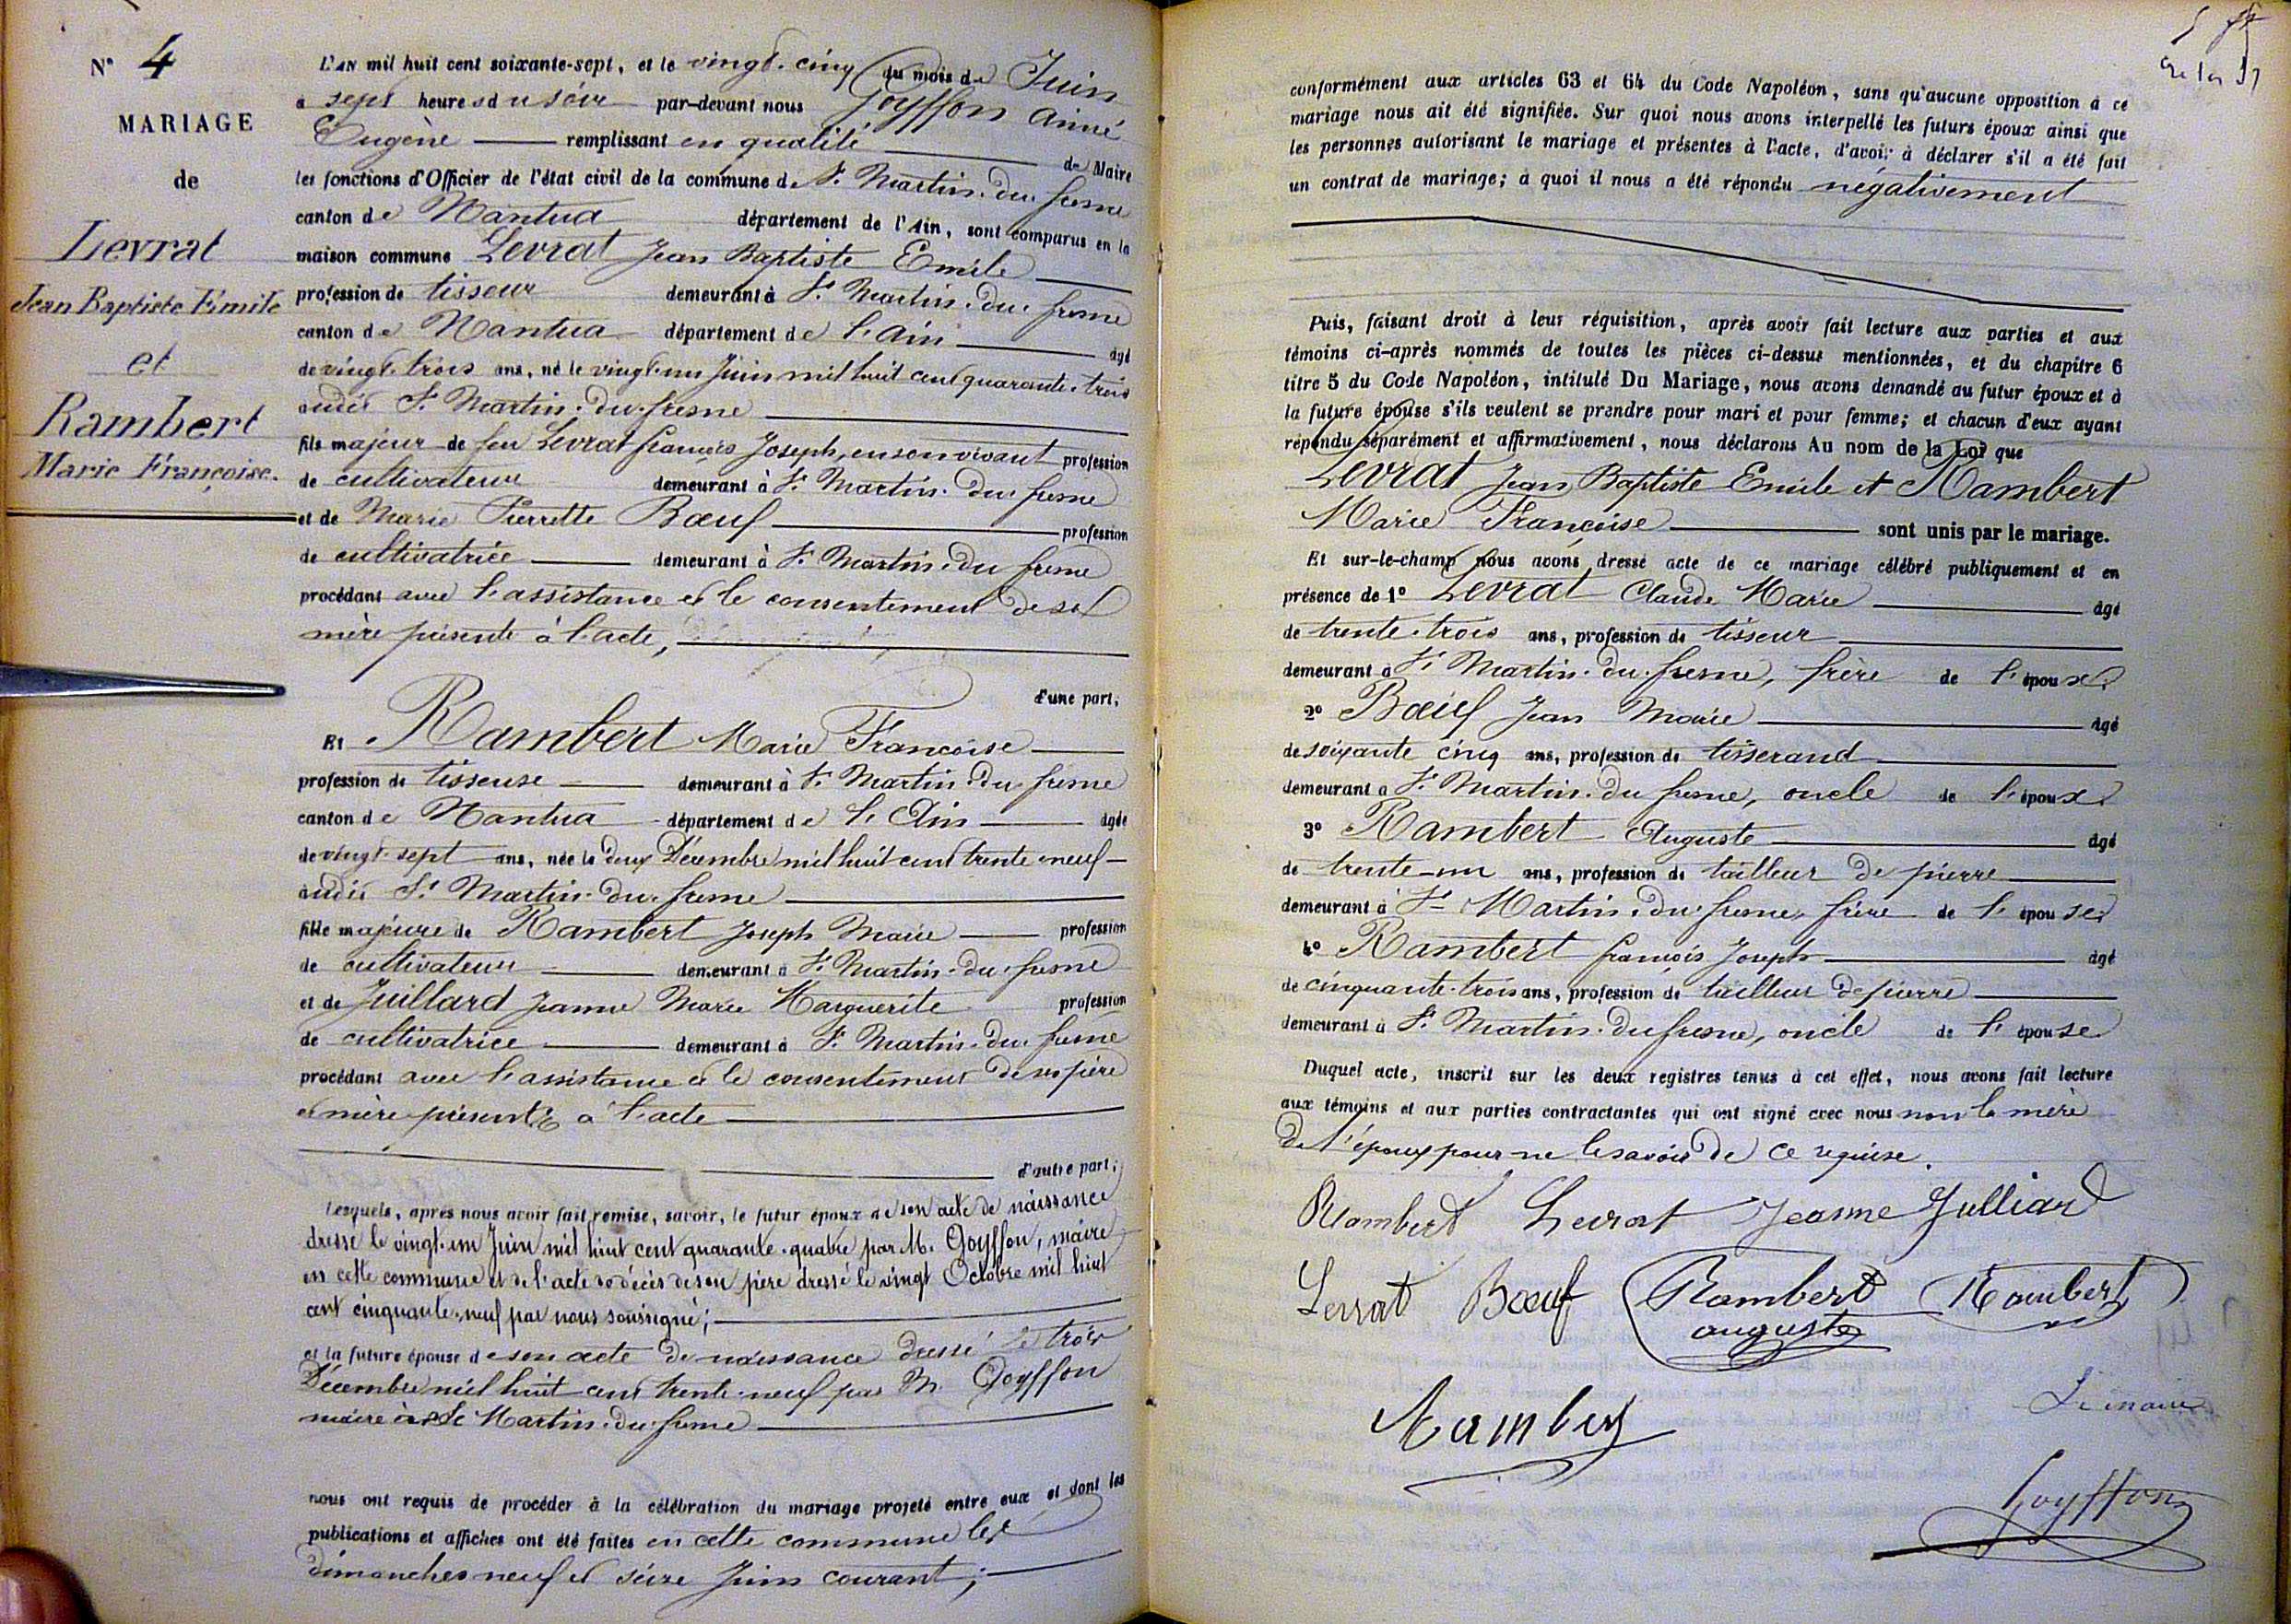 N° 4
MARIAGE
de
Levrat
Jean Baptiste Emile
et
Rambert
Marie Françoise.
L'AN mil huit cent soixante-sept, et le vingt-cinq du mois de Juin
à sept heures du soir par-devant nous Goyffon Aimé
Eugène remplissant en qualité de Maire
les fonctions d'Officier de l'état civil de la commune de St Martin-du-fresne
canton de Nantua département de l'Ain, sont comparus en la
maison commune Levrat Jean Baptiste Emile
profession de tisseur demeurant à St Martin-du-fresne
canton de Nantua département de l'Ain âgé
de vingt-trois ans, né le vingt-un Juin mil huit cent quarante-trois
audit St Martin-du-fresne
fils majeur de feu Levrat françois Joseph, en son vivant profession
de cultivateur demeurant à St Martin-du-fresne
et de Marie Pierrette Bœuf profession
de cultivatrice demeurant à St Martin-du-fresne
procédant avec l'assistance et le consentement de sa
mère présente à l'acte,
d'une part;
Et Rambert Marie Françoise
profession de tisseuse demeurant à St Martin-du-fresne
canton de Nantua département de l'Ain âgée
de vingt-sept ans, née le deux Décembre mil huit cent trente-neuf
audit St Martin-du-fresne
fille majeure de Rambert Joseph Marie profession
de cultivateur demeurant à St Martin-du-fresne
et de Juillard Jeanne Marie Marguerite profession
de cultivatrice demeurant à St Martin-du-fresne
procédant avec l'assistance et le consentement de ses père
et mère présents à l'acte
d'autre part;
Lesquels, après nous avoir fait remise, savoir, le futur époux de son acte de naissance
dressé le vingt-un Juin mil huit cent quarante-quatre par M. Goyffon, maire
en cette commune et de l'acte de décès de son père dressé le vingt Octobre mil huit
cent cinquante-neuf par nous soussigné;
et la future épouse de son acte de naissance dressé le trois
Décembre mil huit cent trente-neuf par M. Goyffon
maire à St Martin-du-fresne
nous ont requis de procéder à la célébration du mariage projeté entre eux et dont les
publications et affiches ont été faites en cette commune les
dimanches neuf et seize Juin courant;
conformément aux articles 63 et 64 du Code Napoléon, sans qu'aucune opposition à ce
mariage nous ait été signifiée. Sur quoi nous avons interpellé les futurs époux ainsi que
les personnes autorisant le mariage et présentes à l'acte, d'avoir à déclarer s'il a été fait
un contrat de mariage; à quoi il nous a été répondu négativement
Puis, faisant droit à leur réquisition, après avoir fait lecture aux parties et aux
témoins ci-après nommés de toutes les pièces ci-dessus mentionnées, et du chapitre 6
titre 5 du Code Napoléon, intitulé Du Mariage, nous avons demandé au futur époux et à
la future épouse s'ils veulent se prendre pour mari et pour femme; et chacun d'eux ayant
répondu séparément et affirmativement, nous déclarons Au nom de la Loi que
Levrat Jean Baptiste Emile et Rambert
Marie Françoise sont unis par le mariage.
Et sur-le-champ nous avons dressé acte de ce mariage célébré publiquement et en
présence de 1° Levrat Claude Marie âgé
de trente-trois ans, profession de tisseur
demeurant à St Martin-du-fresne, frère de l'époux
2° Bœuf Jean Marie âgé
de soixante cinq ans, profession de tisserand
demeurant à St Martin-du fresne, oncle de l'époux
3° Rambert Auguste âgé
de trente-un ans, profession de tailleur de pierre
demeurant à St Martin-du-fresne, frère de l'épouse
4° Rambert françois Joseph âgé
de cinquante-trois ans, profession de tailleur de pierre
demeurant à St Martin-du fresne, oncle de l'épouse
Duquel acte, inscrit sur les deux registres tenus à cet effet, nous avons fait lecture
aux témoins et aux parties contractantes qui ont signé avec nous non la mère
de l'époux pour ne le savoir de ce requise.
Rambert Levrat Jeanne Julliard
Levrat Bœuf Rambert Rambert
auguste
Rambert
Le maire
Goyffon